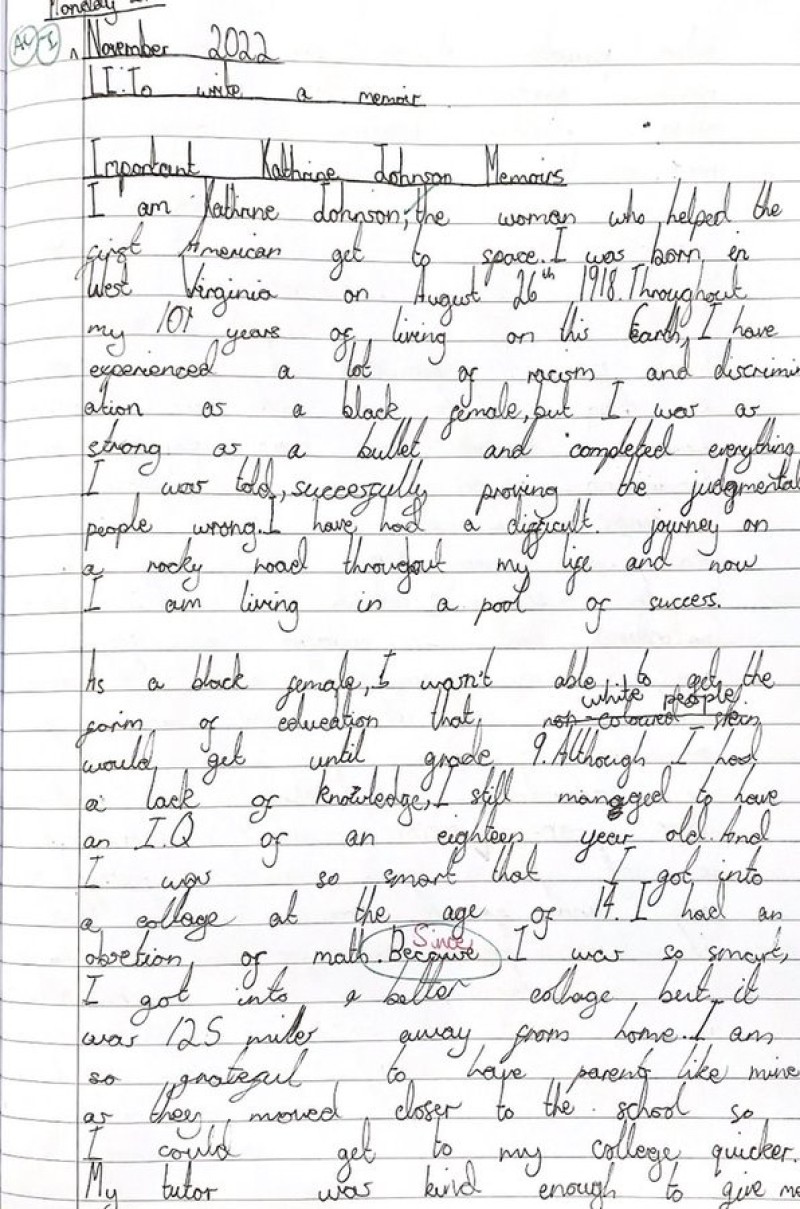 Monday
November 2022
LI:To write a memoir
Important Kathrine Johnson Memoirs
I am Kathrine Johnson; the woman who helped the
first American get to space. I was born in
West Virginia on August 26th 1918. Throughout
my 101 years of living on this Earth, I have
experienced a lot of racism and discrimin
ation as a black female, but I was as
strong as a bullet and completed everything
I was told, successfully proving the judgmental
people wrong. I have had a difficult journey on
a rocky road throughout my life and now
I am living in a pool of success.
As a black female, I wasn't able to get the
white people
form of education that not-coloured skin
would get until grade 9. Although I had
a lack of knowledge, I still managed to have
an I.Q of an eighteen year old. And
I was so smart that I got into
a collage at the age of 14. I had an
Since
obsetion of math. Because I was so smart,
I got into a better collage but it
was 125 miles away from home. I am
so grateful to have parents like mine
as they moved closer to the school so
I could get to my college quicker.
My tutor was kind enough to give me